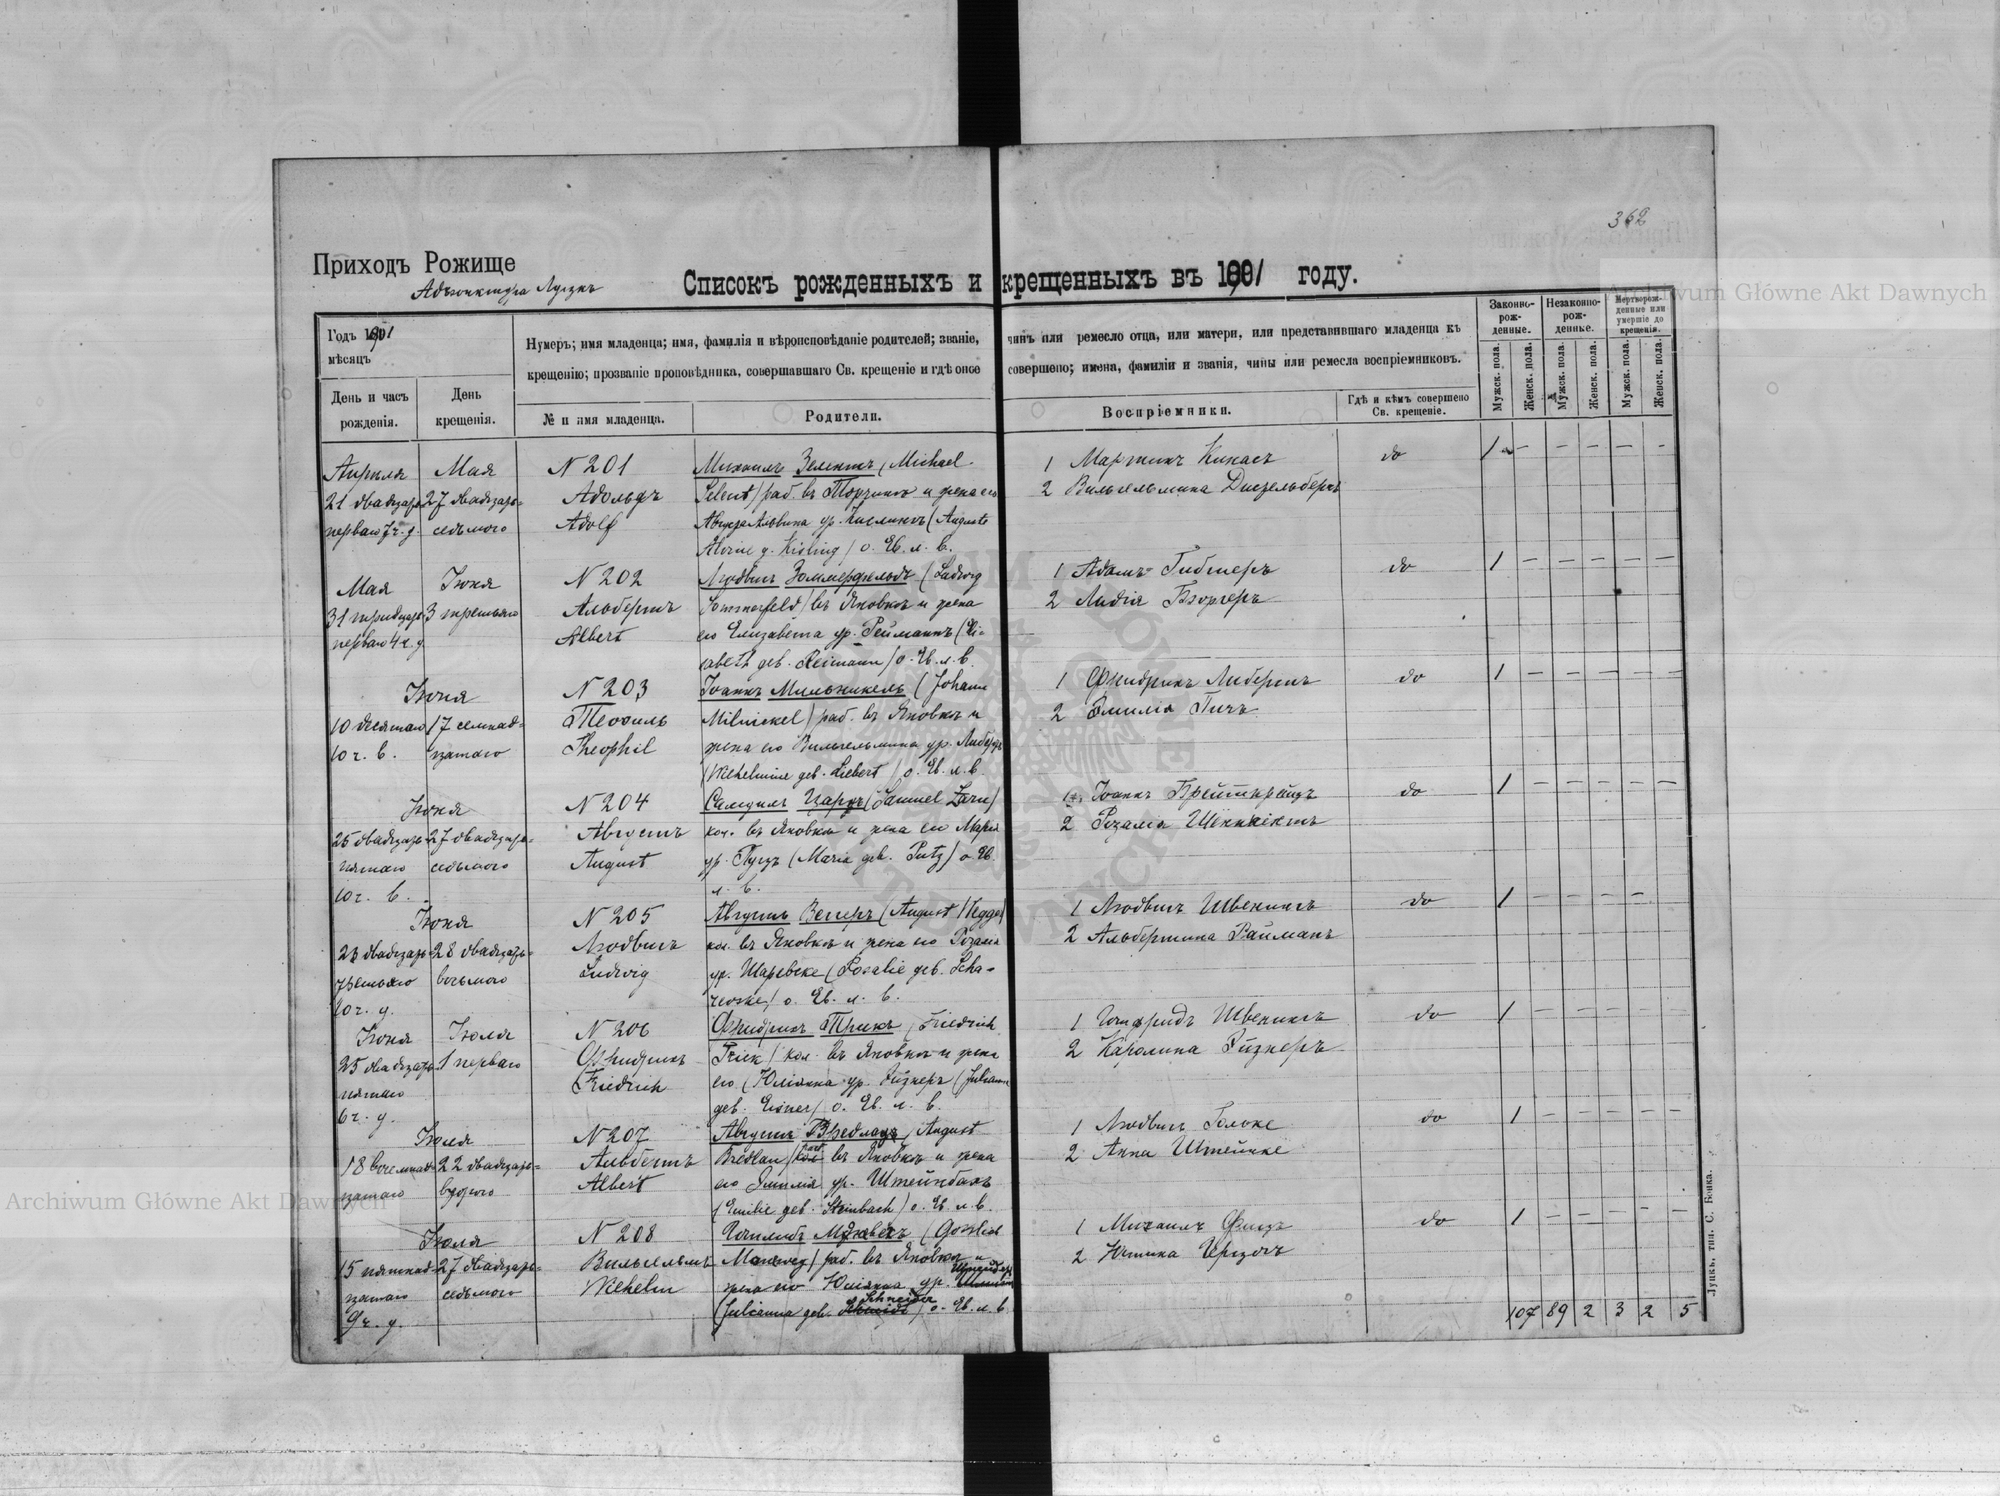 362
Приходъ Рожище
Адъюнктура Луцкъ
Списокъ рожденныхъ и крещенныхъ въ 1901 году.
Годъ 1901
мѣсяцъ
День и часъ рожденія.
День крещенія.
Нумеръ; имя младенца; имя, фамилія и вѣроисповѣданіе родителей; званіе, чинъ или ремесло отца, или матери, или представившаго младенца къ
крещенію; прозваніе проповѣдника, совершавшаго Св. крещеніе и гдѣ оное совершено; имена, фамиліи и званія, чины или ремесла воспріемниковъ.
№ и имя младенца.
Родители.
Воспріемники.
Гдѣ и кѣмъ совершено Св. крещеніе.
Законно-рож-денные.
Незаконно-рож-денные.
Мертворож-денные или умершіе до крещенія.
Мужск. пола.
Женск. пола.
Мужск. пола.
Женск. пола.
Мужск. пола.
Женск. пола.
Апрѣля Мая N 201 Михаилъ Зелентъ (Michael 1 Мартинъ Кинасъ до 1 - - - - -
21 двадцать 27 двадцать- Адольфъ Selent) раб. въ и жена его 2 Вильгельмина
перваго 7 ч. д. седьмого Adolf Августа Альвина ур. Кислингъ (Auguste
Alvine g. Kisling) о. Ев. л. в.
Мая Іюня N 202 Людвигъ Зоммерфельдъ (Ludwig 1 Адамъ до 1 - - - - -
31 тридцать 3 третьяго Альбертъ Sommerfeld) въ Яновкѣ и жена 2 Лидія Бюргеръ
перваго 4 ч. д. Albert его Елизавета ур. Рейманнъ (Eli-
sabeth geb. Reimann) о. Ев. л. в.
Іюня N 203 Іоаннъ Мильникель (Johann 1 Фридрихъ Либертъ до 1 - - - - -
10 десятаго 17 семнад- Теофиль Milnickel) раб. въ Яновкѣ и 2 Эмилія
10 ч. в. цатаго Theophil жена его Вильгельмина ур. Либертъ
(Wilhelmine geb. Liebert) о. Ев. л. в.
Іюня N 204 Самуилъ Царнъ (Samuel Zarn) 1 Іоаннъ Брейткрейцъ до 1 - - - - -
25 двадцать 27 двадцать- Августъ кол. въ Яновкѣ и жена его Марія 2 Розалія
пятаго седьмого August ур. Пуцъ (Maria geb. Putz) о. Ев.
10 ч. в. л. в.
Іюня N 205 Августъ Веггеръ (August 1 Людвигъ Швенингъ до 1 - - - -
23 двадцать 28 двадцать- Людвигъ кол. въ Яновкѣ и жена его Розалія 2 Альбертина Райманъ
третьяго восьмого Ludwig ур. Шаревске (Rosalie geb. Scha-
10 ч. д. rewske) о. Ев. л. в.
Іюня Іюля N 206 Фридрихъ Трикъ (Friedrich 1 Готфридъ Швенингъ до 1 - - - - -
25 двадцать 1 перваго Фридрихъ Trick) кол. въ Яновкѣ и жена 2 Каролина Эйзнеръ
пятаго Friedrich его (Юліанна ур. Эйзнеръ (Julianna
6 ч. д. geb. Eisner) о. Ев. л. в.
Іюля N 207 Августъ Бредлау (August 1 Людвигъ до 1 - - - - -
18 восемнад- 22 двадцать- Альбертъ Bredlau) въ Яновкѣ и жена 2 Анна Штейнке
цатаго второго Albert его Эмилія ур. Штейнбахъ
(Emilie geb. Steinbach) о. Ев. л. в.
Іюля N 208 Готлибъ (Gottlieb 1 Михаилъ до 1 - - - - -
15 пятнад- 27 двадцать- Вильгельмъ раб. въ Яновкѣ и 2 Юстина
цатаго седьмого Wilhelm жена его Юліанна ур. Шнейдеръ
9 ч. д. (Julianna geb. Schneider) о. Ев. л. в.
107 89 2 3 2 5
Луцкъ, тип. С. Бонка.
Archiwum Główne Akt Dawnych
Archiwum Główne Akt Dawnych